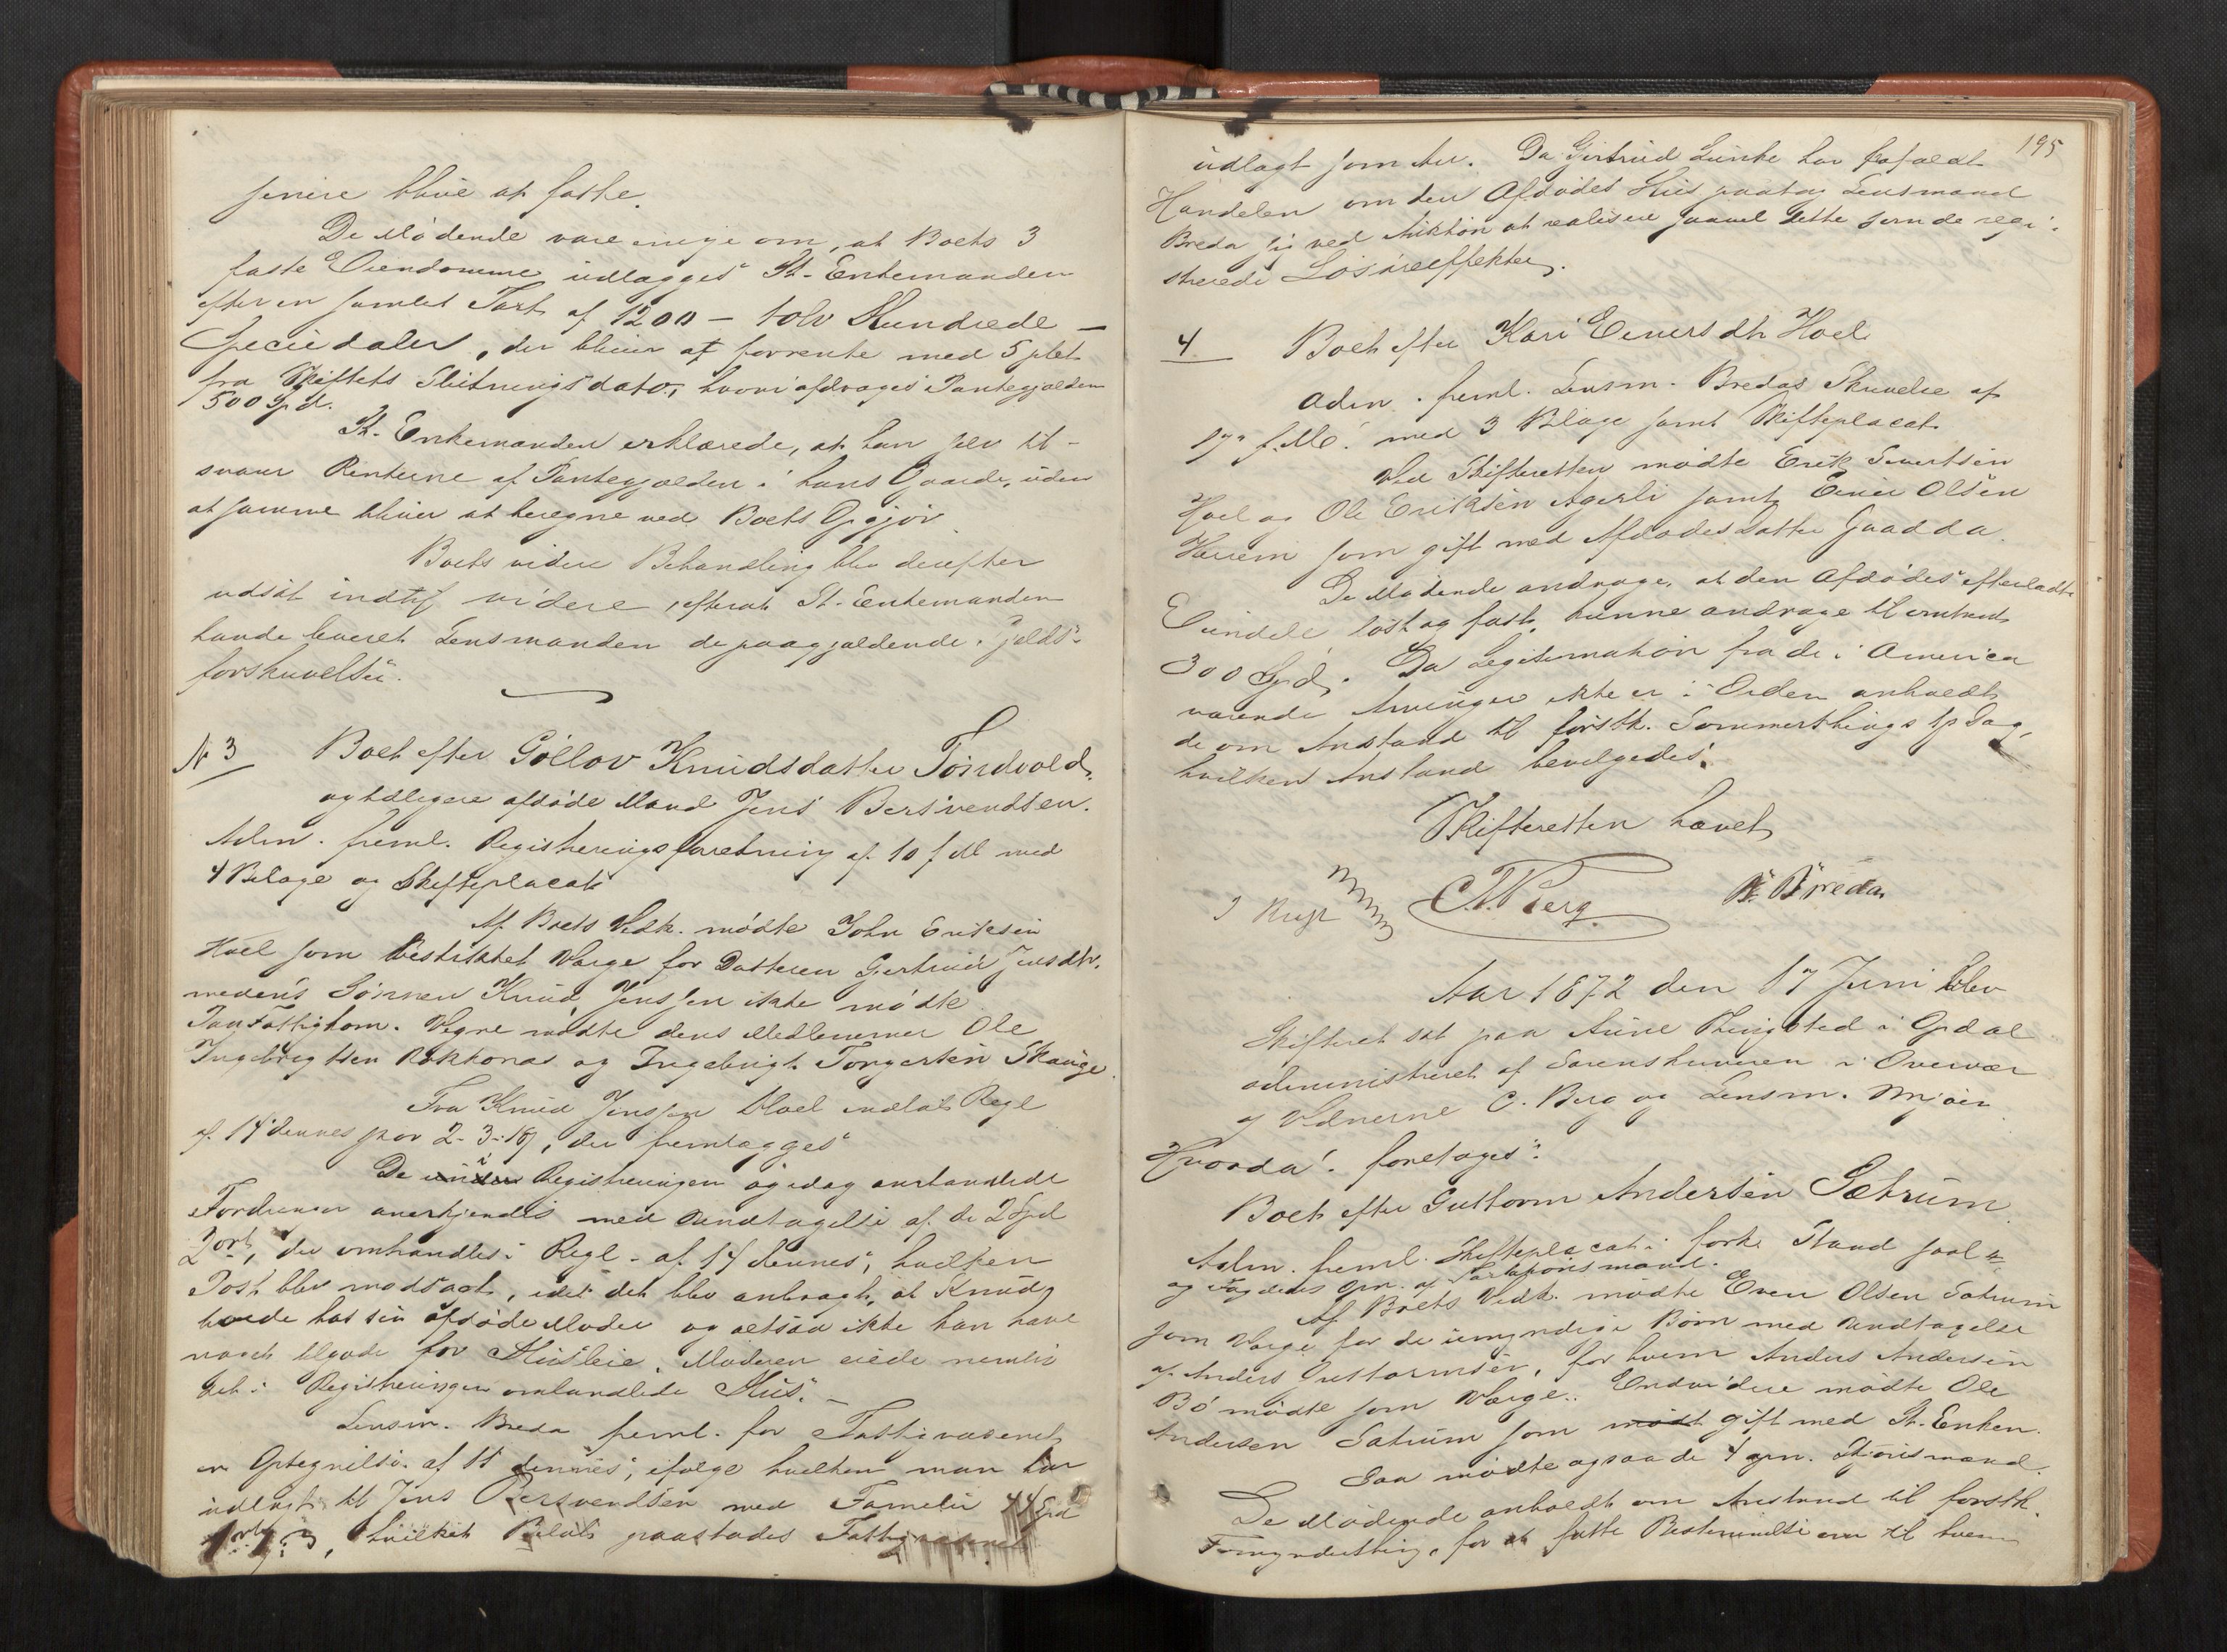 senere blive at fatte.
De Mødende vare enige om, at Boets 3
faste Eiendomme udlægges St. Enkemanden
efter en samlet Taxt af 1200 – tolv Hundrede –
Speciedaler, der bliver at forrente med 5 pCt
fra Skiftets Slutningsdato, hvori afdrages Pantegjælden
500 Spd.
St. Enkemanden erklærede, at han selv til-
svarer Renterne af Pantegjælden i hans Gaard, uden
at samme bliver at beregne ved Boets Opgjør
Boets videre Behandling blev derefter
udsat indtil videre, efterat St. Enkemanden
havde leveret Lensmanden de paagjældende Gjelds-
forskrivelser.
N 3 Boet efter Göllov Knudsdatter Tøndvold,
og tidligere afdøde Mand Jens Bersvendsen.
Adm. freml. Registreringsforretning af 10 f M med
4 Bilage og Skifteplacat
Af Boets Vedk. mødte John Eriksen
Hoel som beskikket Værge for Datteren Gertrud Jensdtr.
medens Sønnen Knud Jenssen ikke mødte
Paa Fattigkom. Vegne mødte dens Medlemmer Ole
Ingebrigtsen og Ingebrigt Torgersen Skauge.
Fra Knud Jenssen Hoel indløb Regl
af 14 dennes stor 2-3-18, der fremlægges
De i Registreringen og idag omhandlede
Fordringer anerkjendes med Undtagelse af de 2 Spd
2 ort, der omhandles i Regl. af 14 dennes, hvilken
Post blev modsagt, idet det blev anbragt, at Knud
boede hos sin afdøde Moder og altsaa ikke kan have
noget tilgode for Husleie. Moderen eiede nemlig
det i Registreringen omhandlede Hus. –
Lensm. Breda freml. for Fattigvæsenet
en Optegnelse af 11 dennes, ifølge hvilken man har
udlagt til Jens Bersvendsen med Familie 44 Spd
1 ort 3, hvilket Beløb paastodes Fattigvæsenet
195
udlagt som Arv. Da Gertrud Lunke har frafaldt
Handelen om den Afdødes Hus paatog Lensmand
Breda sig ved Auktion at realisere saavel dette som de regi-
strerede Løsøreeffekter.
4 Boet efter Kari Einersdtr Hoel
Adm. freml. Lensm. Bredas Skrivelse af
17 f. M. med 3 Bilage samt Skifteplacat
Ved Skifteretten mødte Erik Sivertsen
Hoel og Ole Eriksen Agerli samt Einer Olsen
som gift med Afdødes Datter
De Mødende androge, at den Afdødes efterladte
Eiendele løst og fast, kunne andrage til omtrent
300 Spd. Da Legitimation fra de i America
værende Arvinger ikke er i Orden anholdt
de om Anstand til førstk. Sommerthings sp Dag,
hvilken Anstand bevilgedes.
Skifteretten hævet
C. Berg Breda
Aar 1872 den 17 Juni blev
Skifteret sat paa Aune Thingsted i Opdal
administreret af Sorenskriveren i Overvær
af Vidnerne C. Berg og Lensm. Mjøen
Hvorda! foretoges:
Boet efter Guttorm Andersen Sætrum.
Adm. freml. Skifteplacat i fork. Stand
og Fogdens Opn. af Taxationsmænd.
Af Boets Vedk. mødte Even Olsen Sætrum
som Værge for de umyndige Børn med Undtagelse
af Anders Guttormsen, for hvem Anders Andersen
Bø mødte som Værge. Endvidere mødte Ole
Andersen Sætrum som mødt gift med St. Enken.
Saa mødte ogsaa de 4 opn. Skjønsmænd.
De Mødende anholdt om Anstand til førstk.
for at fatte Bestemmelse om til hvem